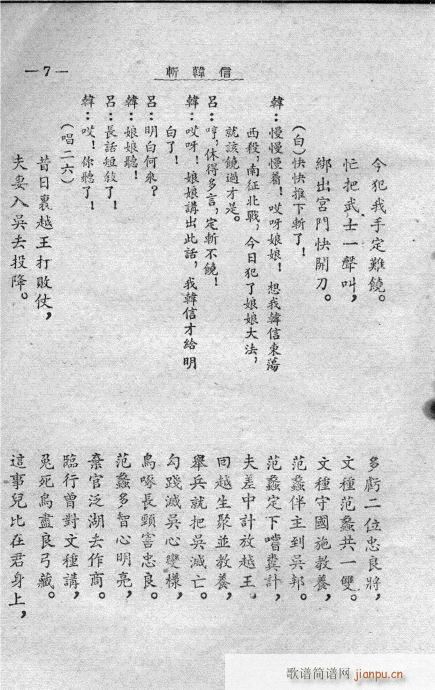 斬韓信
—7—
今犯我手定難饒。
忙把武士一聲叫，
綁出宮門快開刀。
（白）快快推下斬了！
韓：慢慢慢着！哎呀娘娘！想我韓信東蕩
西殺，南征北戰，今日犯了娘娘大法，
就該饒過才是。
呂：哼，休得多言，定斬不饒！
韓：哎呀！娘娘講出此話，我韓信才給明
白了！
呂：明白何來？
韓：娘娘聽！
呂：長話短敘了！
韓：哎！你聽了！
（唱二六）
昔日裏越王打敗仗，
夫妻入吳去投降。
多虧二位忠良將，
文種范蠡共一雙。
文種守國施教養，
范蠡伴主到吳邦。
范蠡定下嚐糞計，
夫差中計放越王。
回越生聚並教養，
舉兵就把吳滅亡。
勾踐滅吳心變樣，
鳥喙長頸害忠良。
范蠡多智心明亮，
棄官泛湖去作商。
臨行曾對文種講，
兎死鳥盡良弓藏。
這事兒比在君身上，
歌谱简谱网
jianpu.cn